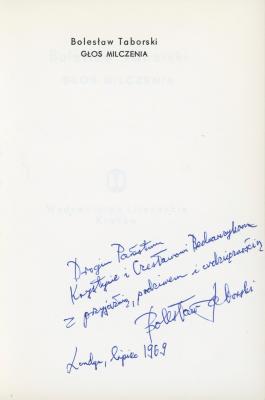 Bolesław Taborski
GŁOS MILCZENIA
Wydawnictwo Literackie
Kraków
Drogim Państwu
Krystynie i Czesławowi Bednarczykom
z przyjaźnią, podziwem i wdzięcznością
Bolesław Taborski
Londyn, lipiec 1969